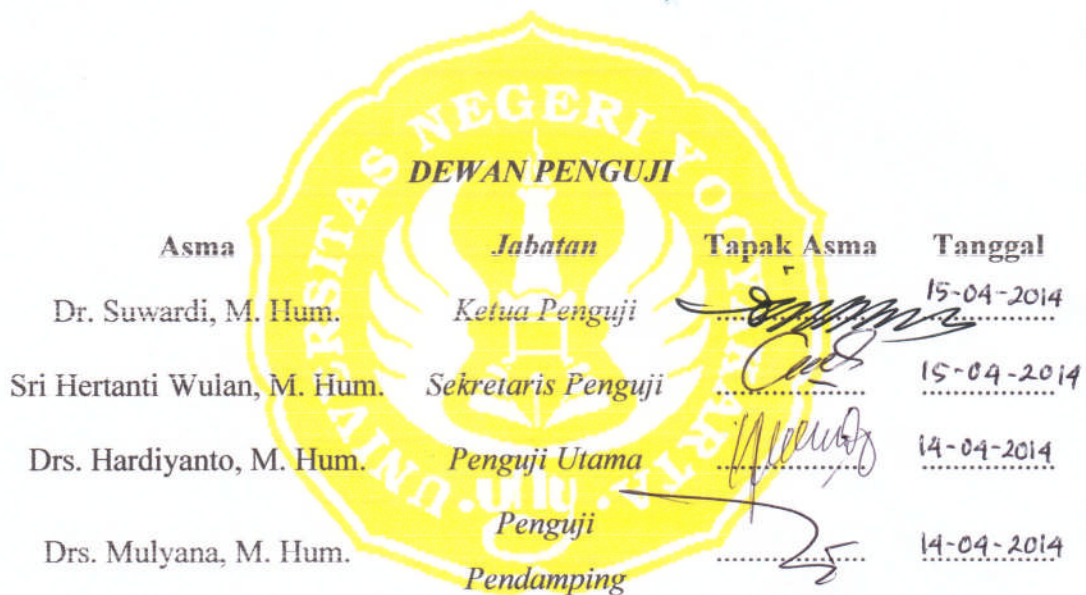 UNIVERSITAS NEGERI YOGYAKARTA
uny
DEWAN PENGUJI
Asma Jabatan Tapak Asma Tanggal
Dr. Suwardi, M. Hum. Ketua Penguji 15-04-2014
Sri Hertanti Wulan, M. Hum. Sekretaris Penguji 15-04-2014
Drs. Hardiyanto, M. Hum. Penguji Utama 14-04-2014
Penguji
Drs. Mulyana, M. Hum. 14-04-2014
Pendamping